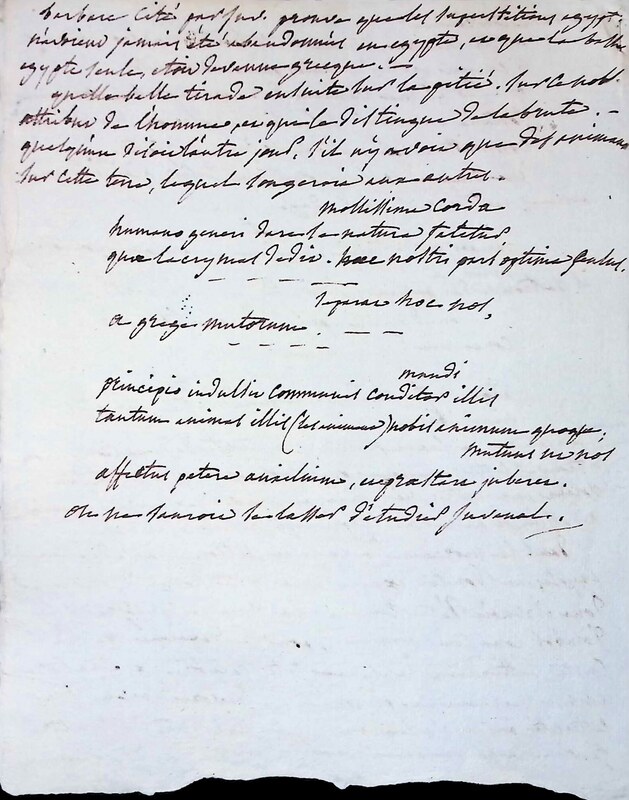 barbare cité par juv. prouve que les superstitions egypt.
n'avoient jamais été abandonnées en egypte, et que la basse
egypte seule, etoit devenue grecque. —
quelle belle tirade ensuite sur la pitié. sur ce nobl.
attribut de l'homme, et qui le distingue de la brute. —
quelqu'un disoit l'autre jour, s'il n'y avoit que des animaux
sur cette terre, lequel songeroit aux autres.
mollissima corda
humano generi dare se natura fatetur,
quae lacrymas dedit. haec nostri pars optima sensus.
separat hoc nos,
a grege mutorum. — —
mundi
principio indulsit communis conditor illis
tantum animas illis (les animaux) nobis animum quoque;
mutuus ut nos
affectus petere auxilium, et praestare juberet.
on ne sauroit se lasser d'etudier Juvenal.